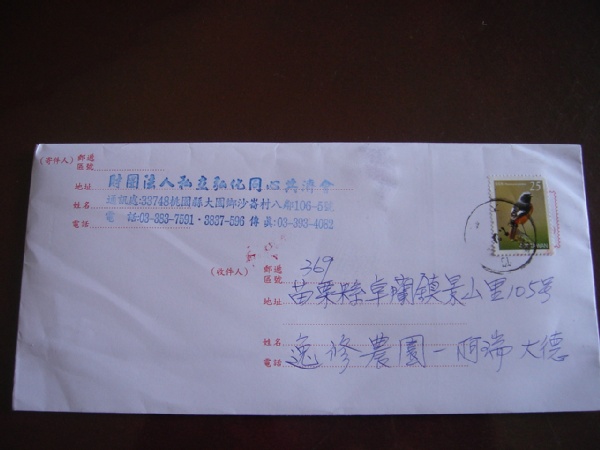 25
(寄件人) 郵遞區號
地址
姓名
電話
財團法人私立弘化同心共濟會
通訊處:33743桃園縣大園鄉沙崙村八鄰106-5號
電話:03-383-7591・3837-596 傳真:03-393-4082
(收件人) 郵遞區號 369
地址 苗栗縣卓蘭鎮景山里105号
姓名
電話 逸修農園一阿瑞大德